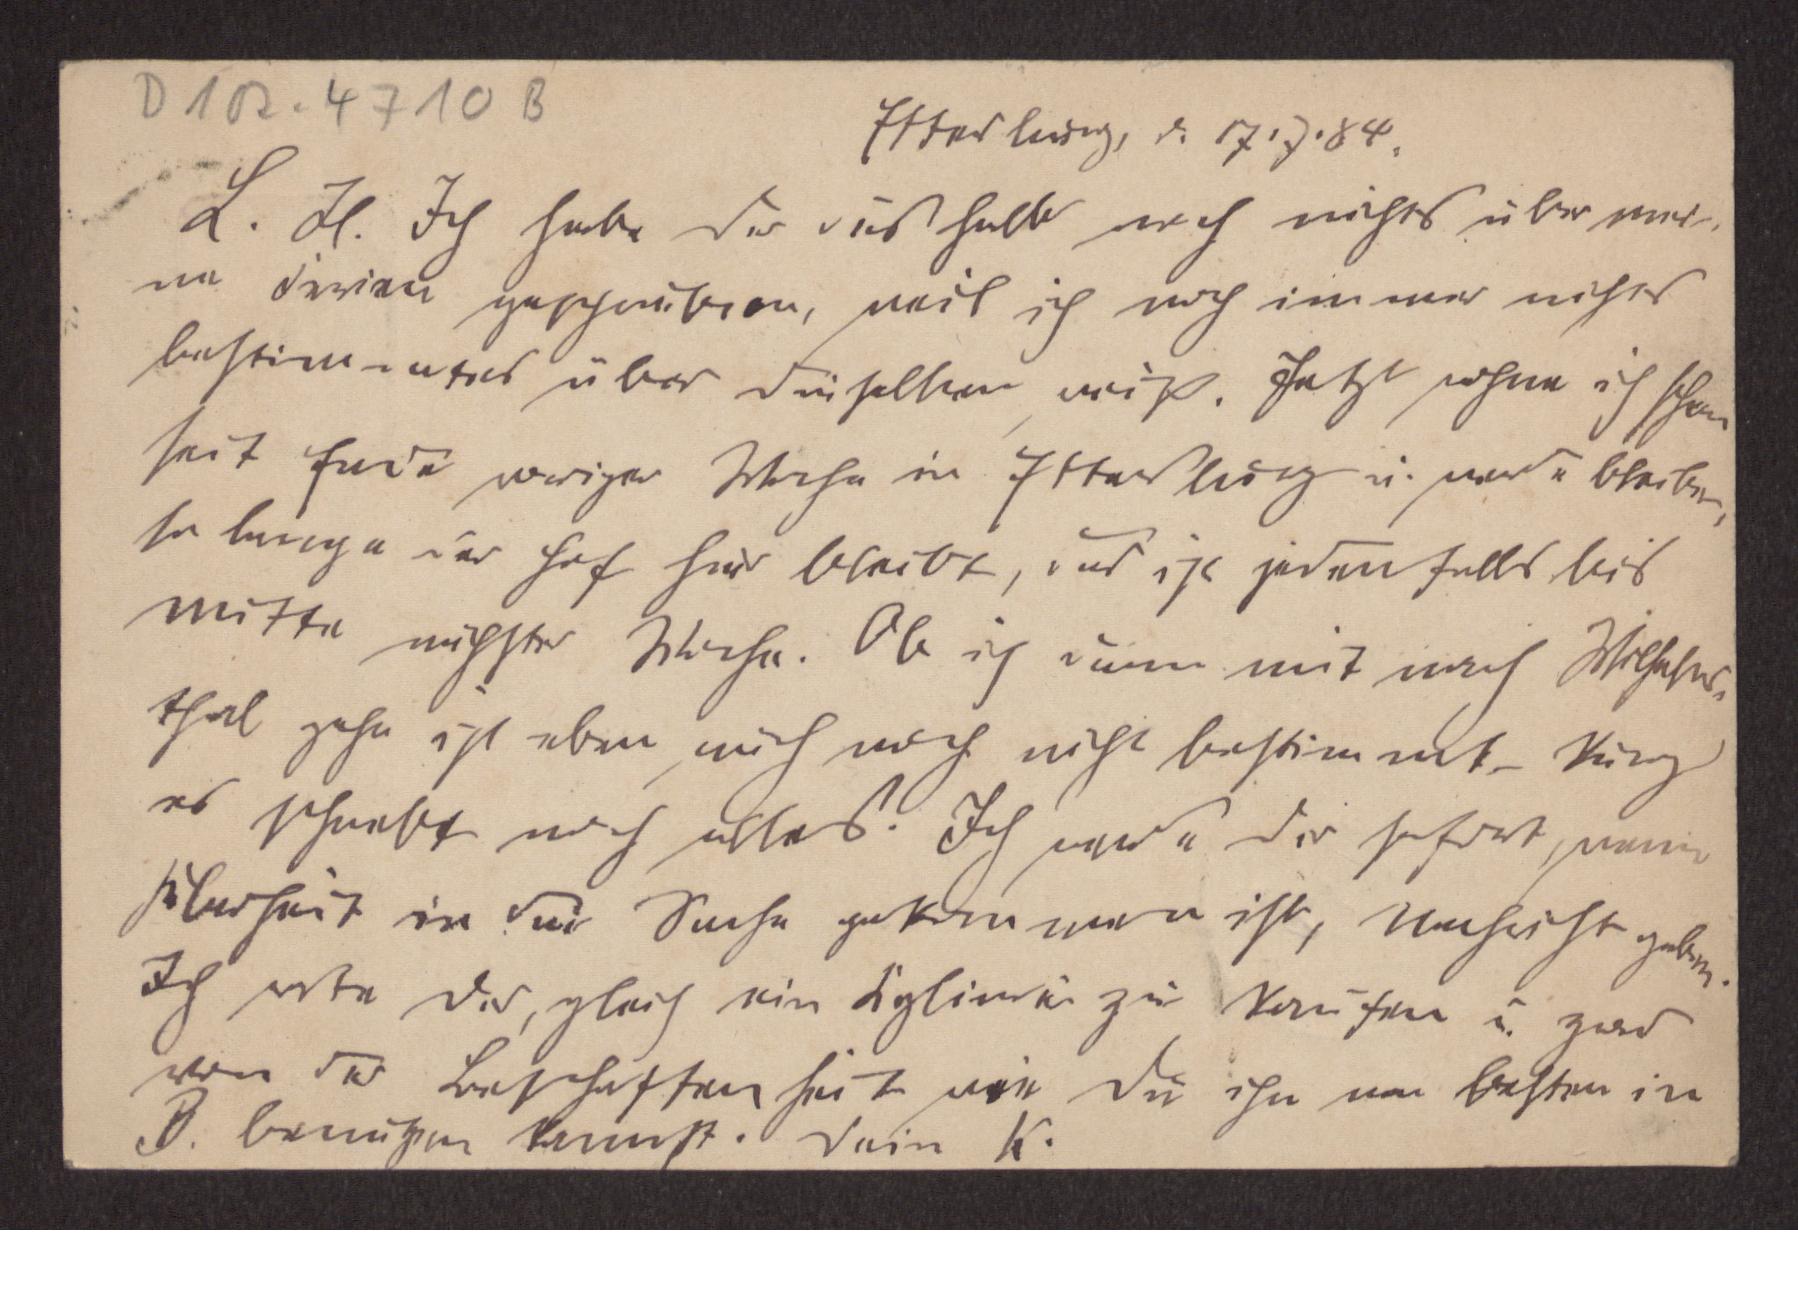 D 102.4710 B
Ettersburg, d. 17.7.84.
L. H. Ich habe dir deshalb noch nichts über mei-
ne Ferien geschrieben, weil ich noch immer nichts
bestimmtes über dieselben weiß. Jetzt wohne ich schon
seit Ende voriger Woche in Ettersburg u. werde bleiben,
so lange der Hof hier bleibt, das ist jedenfalls bis
Mitte nächster Woche. Ob ich dann mit nach Wilhelms-
thal gehe ist eben auch noch nicht bestimmt – kurz
es schwebt noch alles. Ich werde dir sofort, wenn
Klarheit in die Sache gekommen ist, Nachricht geben.
Ich rate dir, gleich ein zu kaufen u. zwar
von der Beschaffenheit wie du ihn am besten in
B. benutzen kannst. Dein K.